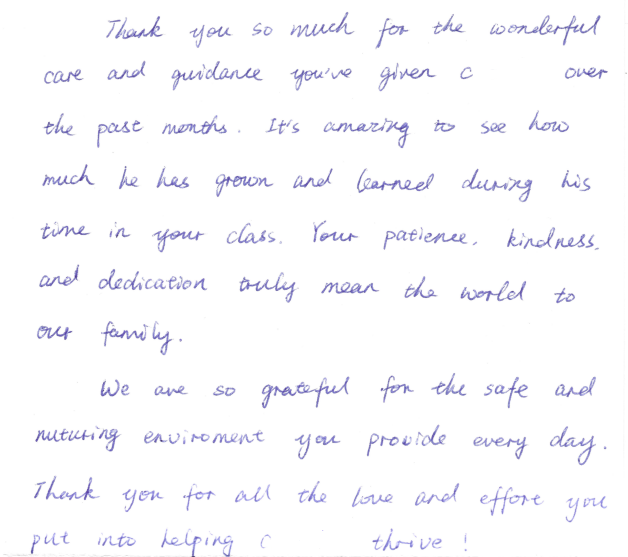 Thank you so much for the wonderful
care and guidance you've given c over
the past months. It's amazing to see how
much he has grown and learned during his
time in your class. Your patience, kindness,
and dedication truly mean the world to
our family.
We are so grateful for the safe and
nuturing enviroment you provide every day.
Thank you for all the love and effort you
put into helping c thrive!